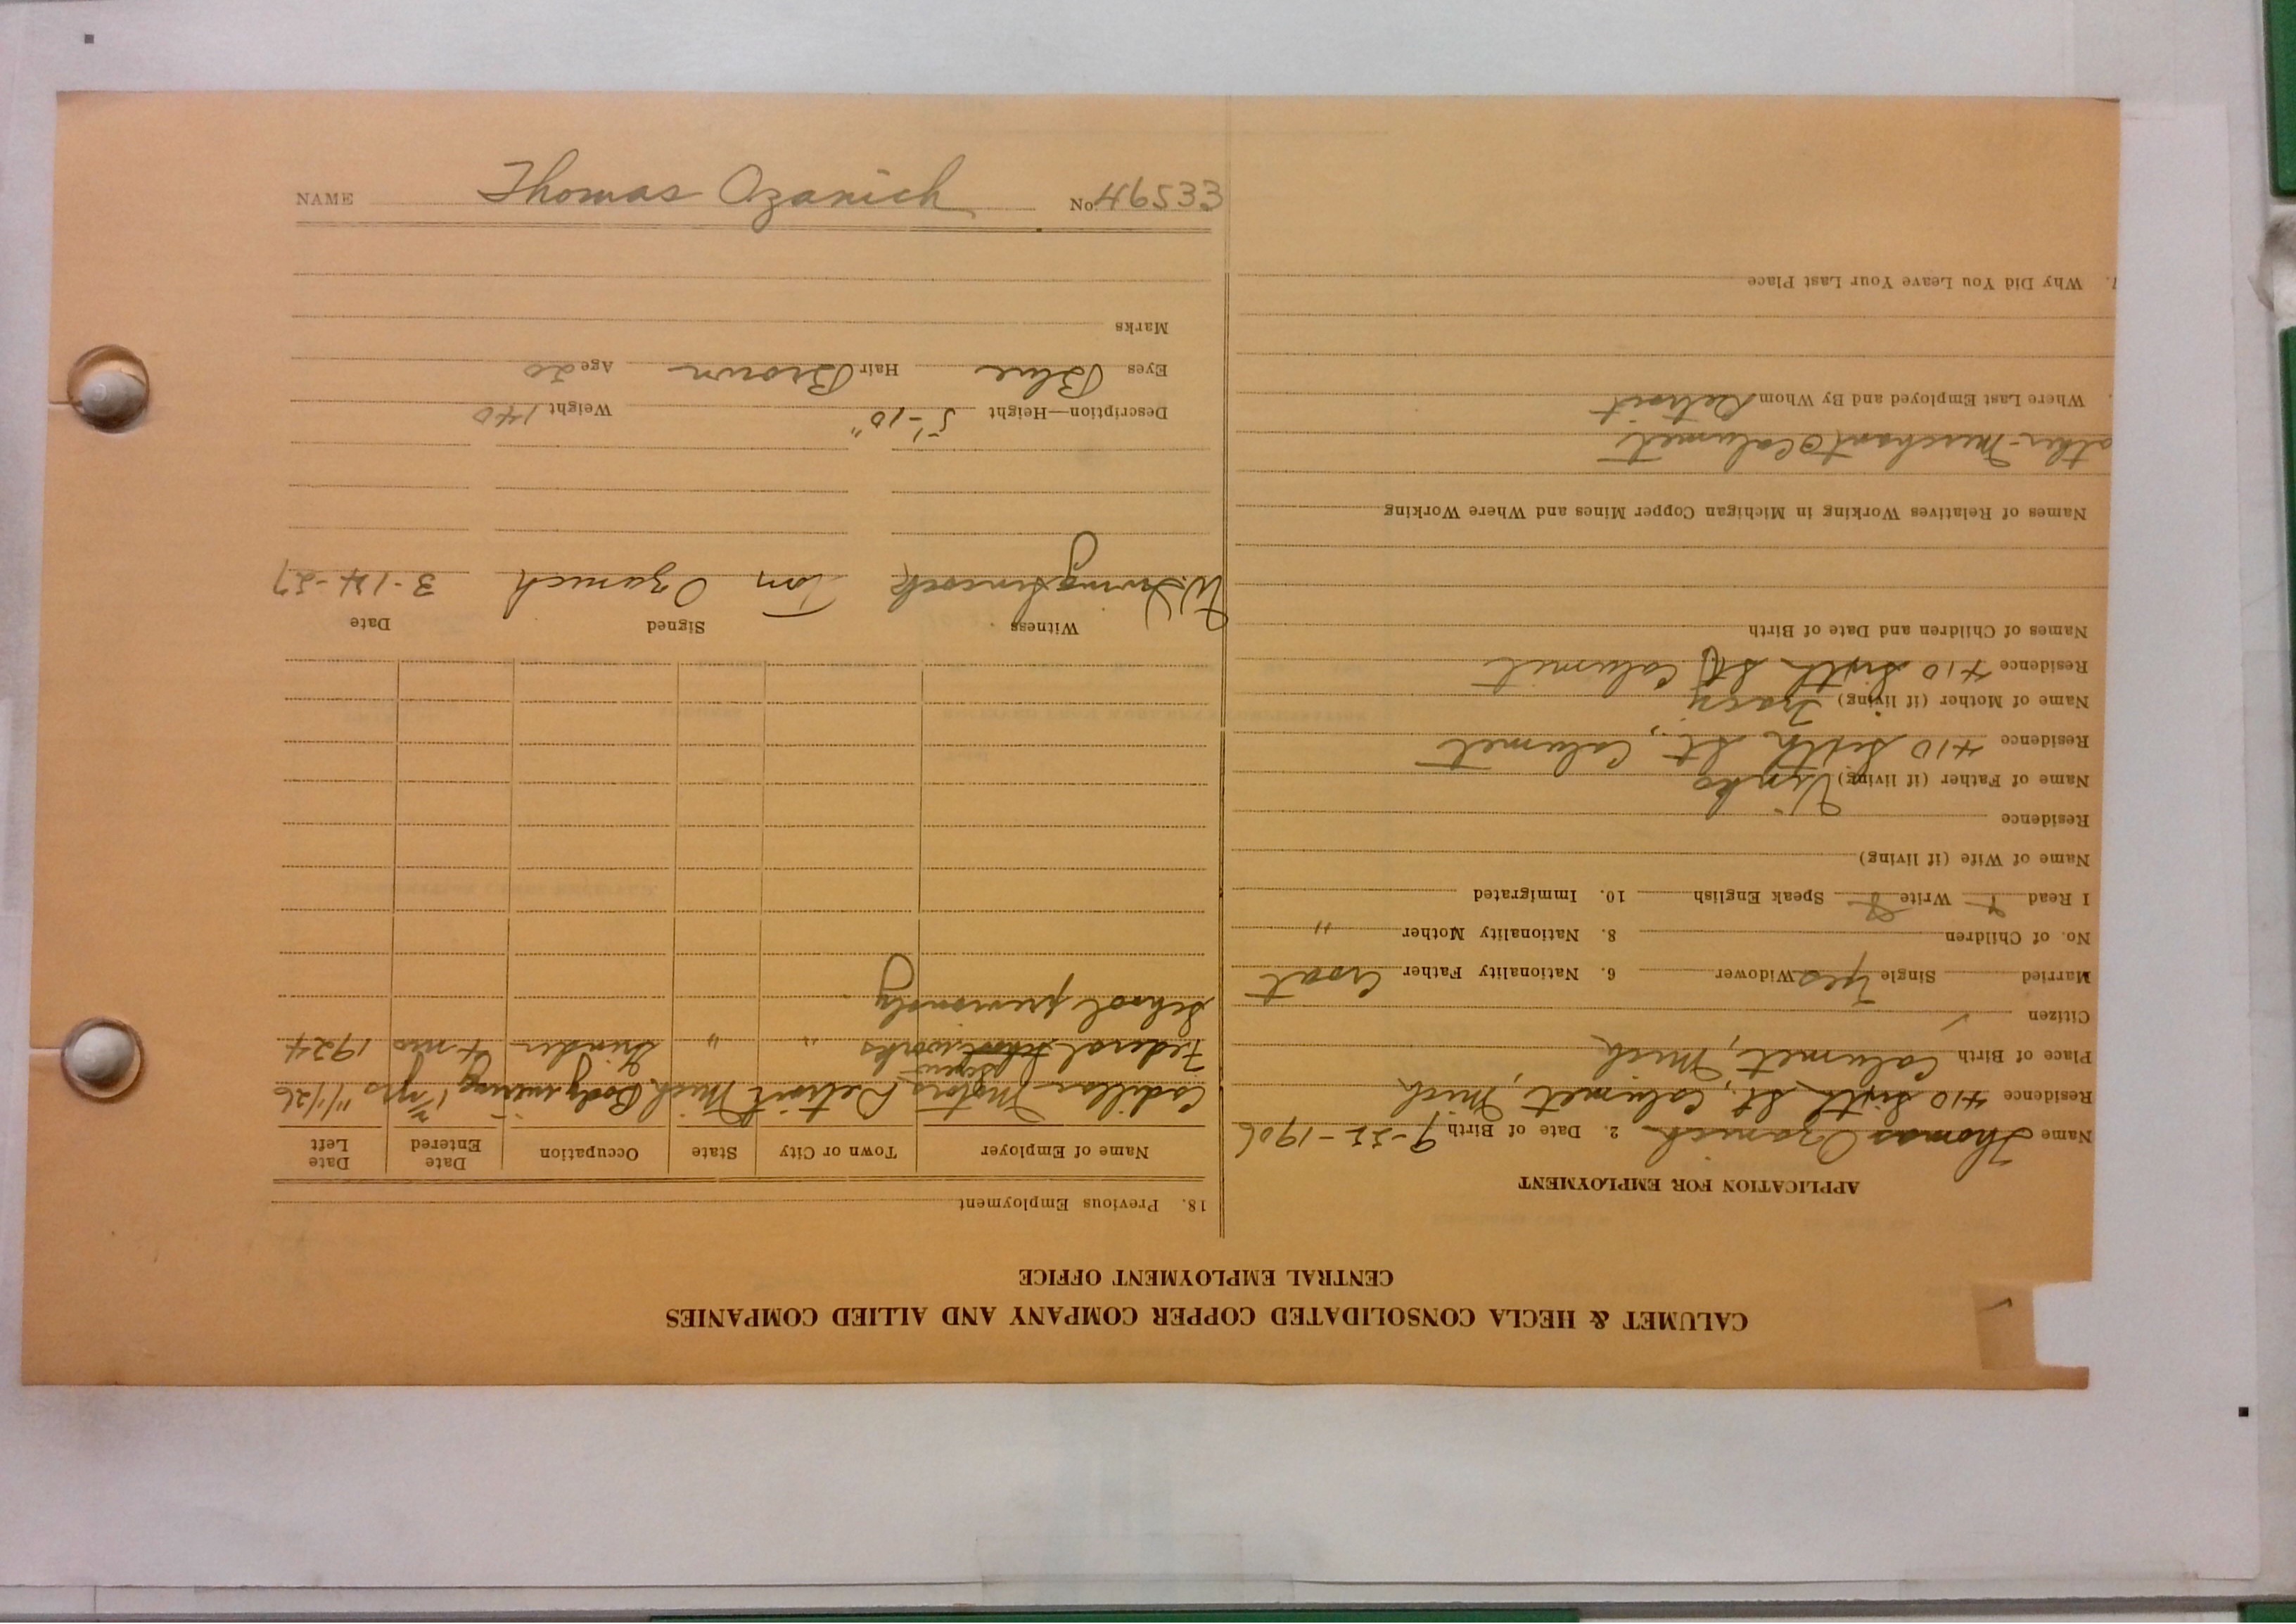 NAME Thomas Ozanich No. 46533
CALUMET & HECLA CONSOLIDATED COPPER COMPANY AND ALLIED COMPANIES
CENTRAL EMPLOYMENT OFFICE
APPLICATION FOR EMPLOYMENT
Name Thomas Ozanich 2. Date of Birth 9-22-1906
Residence 410 Sixth St, Calumet, Mich
Place of Birth Calumet, Mich
Citizen ✓
Married Single Yes Widower 6. Nationality Father Croat
No. of Children 8. Nationality Mother "
I Read Write Speak English 10. Immigrated
Name of Wife (if living)
Residence
Name of Father (if living) Vinko
Residence 410 Sixth St, Calumet
Name of Mother (if living) Tracy
Residence 410 Sixth St, Calumet
Names of Children and Date of Birth
Names of Relatives Working in Michigan Copper Mines and Where Working
ather-Merchant Calumet
Where Last Employed and By Whom Detroit
Why Did You Leave Your Last Place
18. Previous Employment
Name of Employer Town or City State Occupation Date Entered Date Left
Cadillac Motors Detroit Mich Body 1 yrs 11/1/26
Federal works " " Grinder 4 mos 1924
School previously
Witness Signed Date
Tom Ozanich 3-14-27
Description—Height 5'-10" Weight 140
Eyes Blue Hair Brown Age 20
Marks